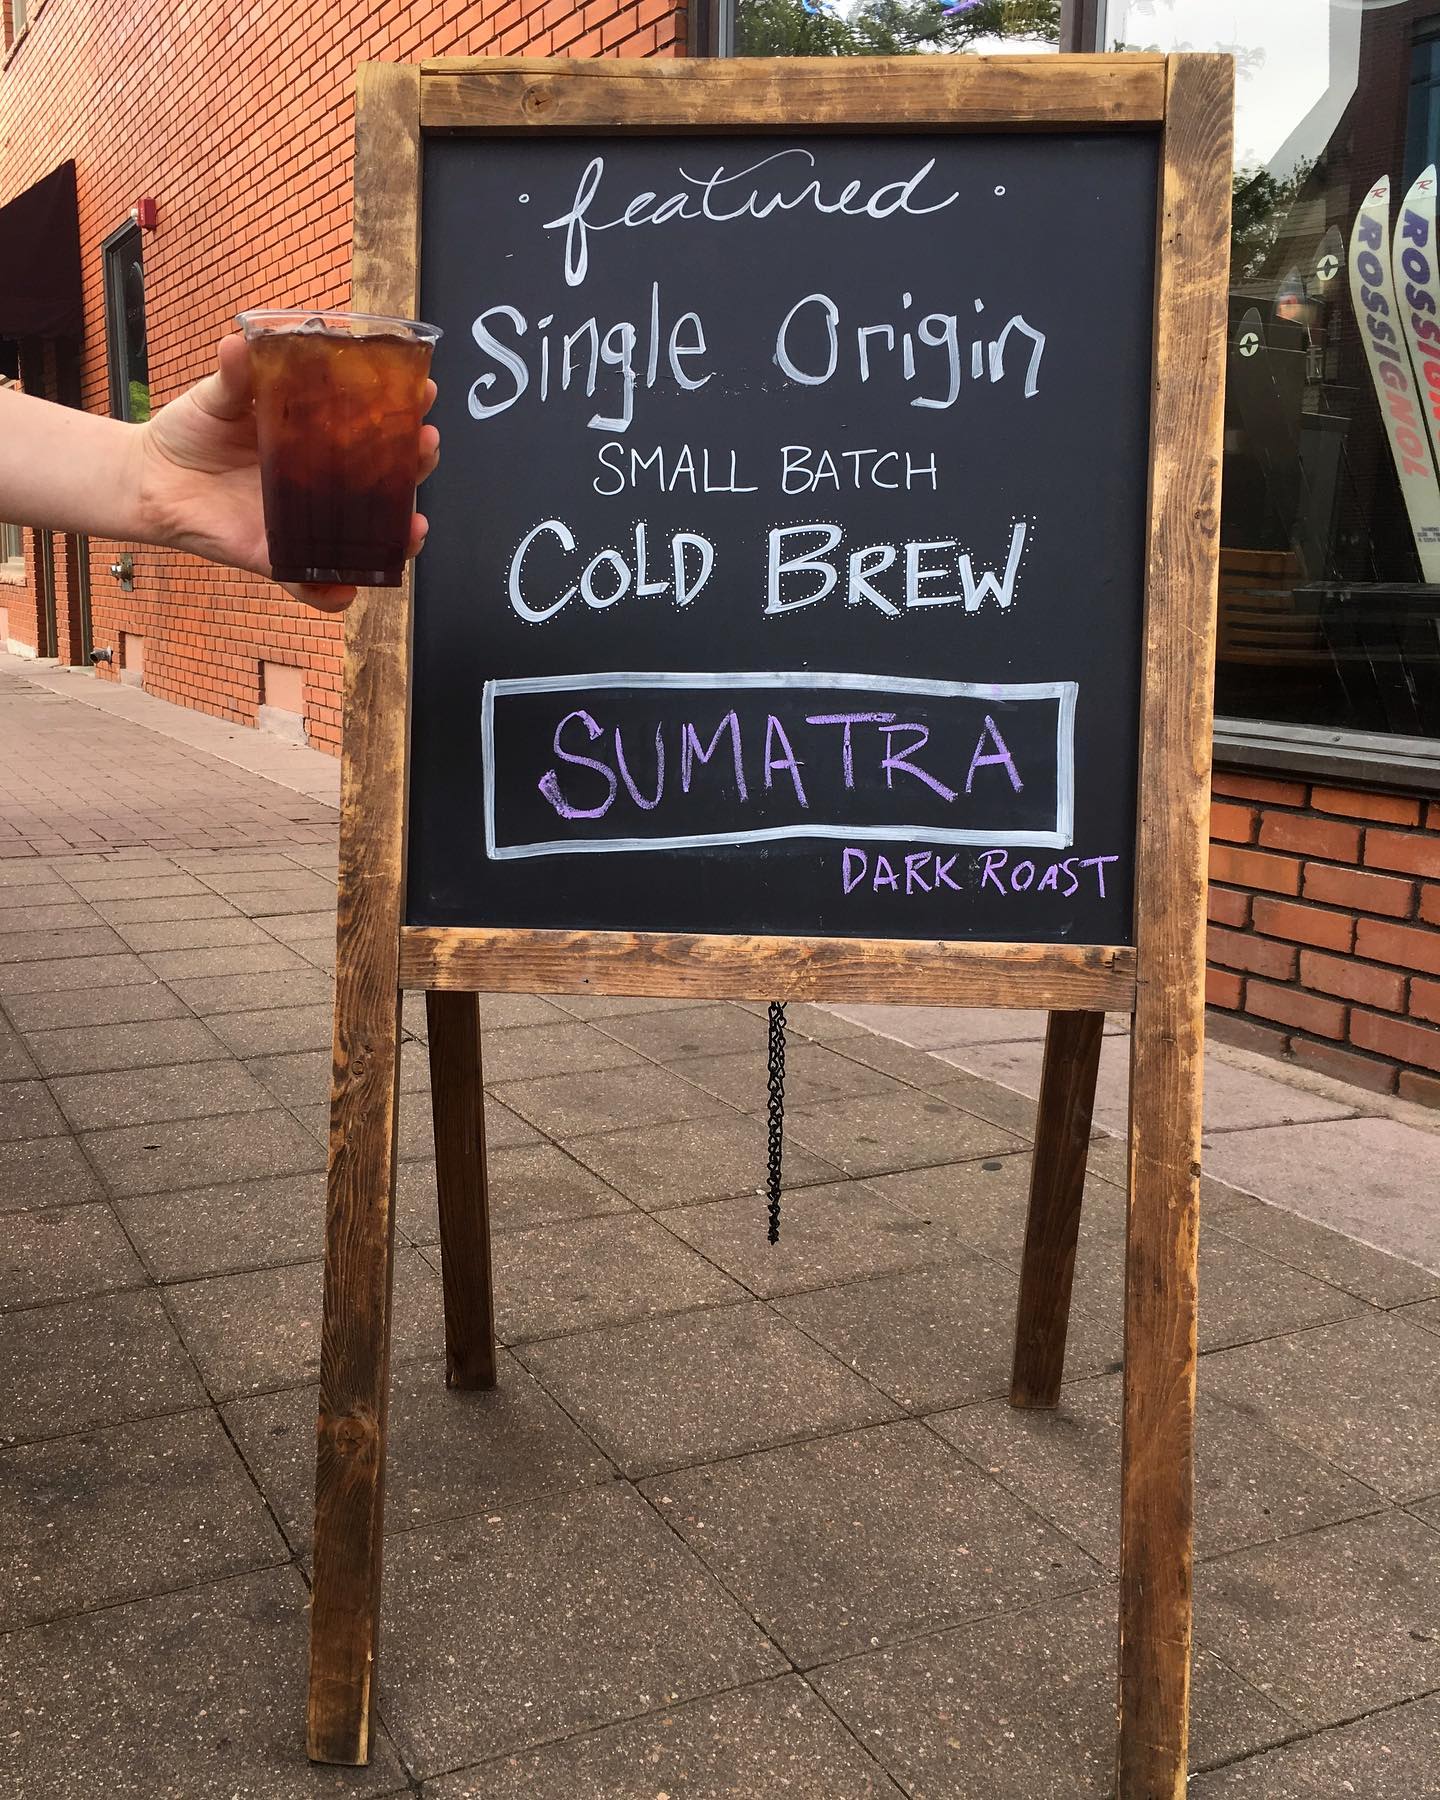 featured
Single Origin
SMALL BATCH
COLD BREW
SUMATRA
DARK ROAST
ROSSIGNOL
ROSSIGNOL